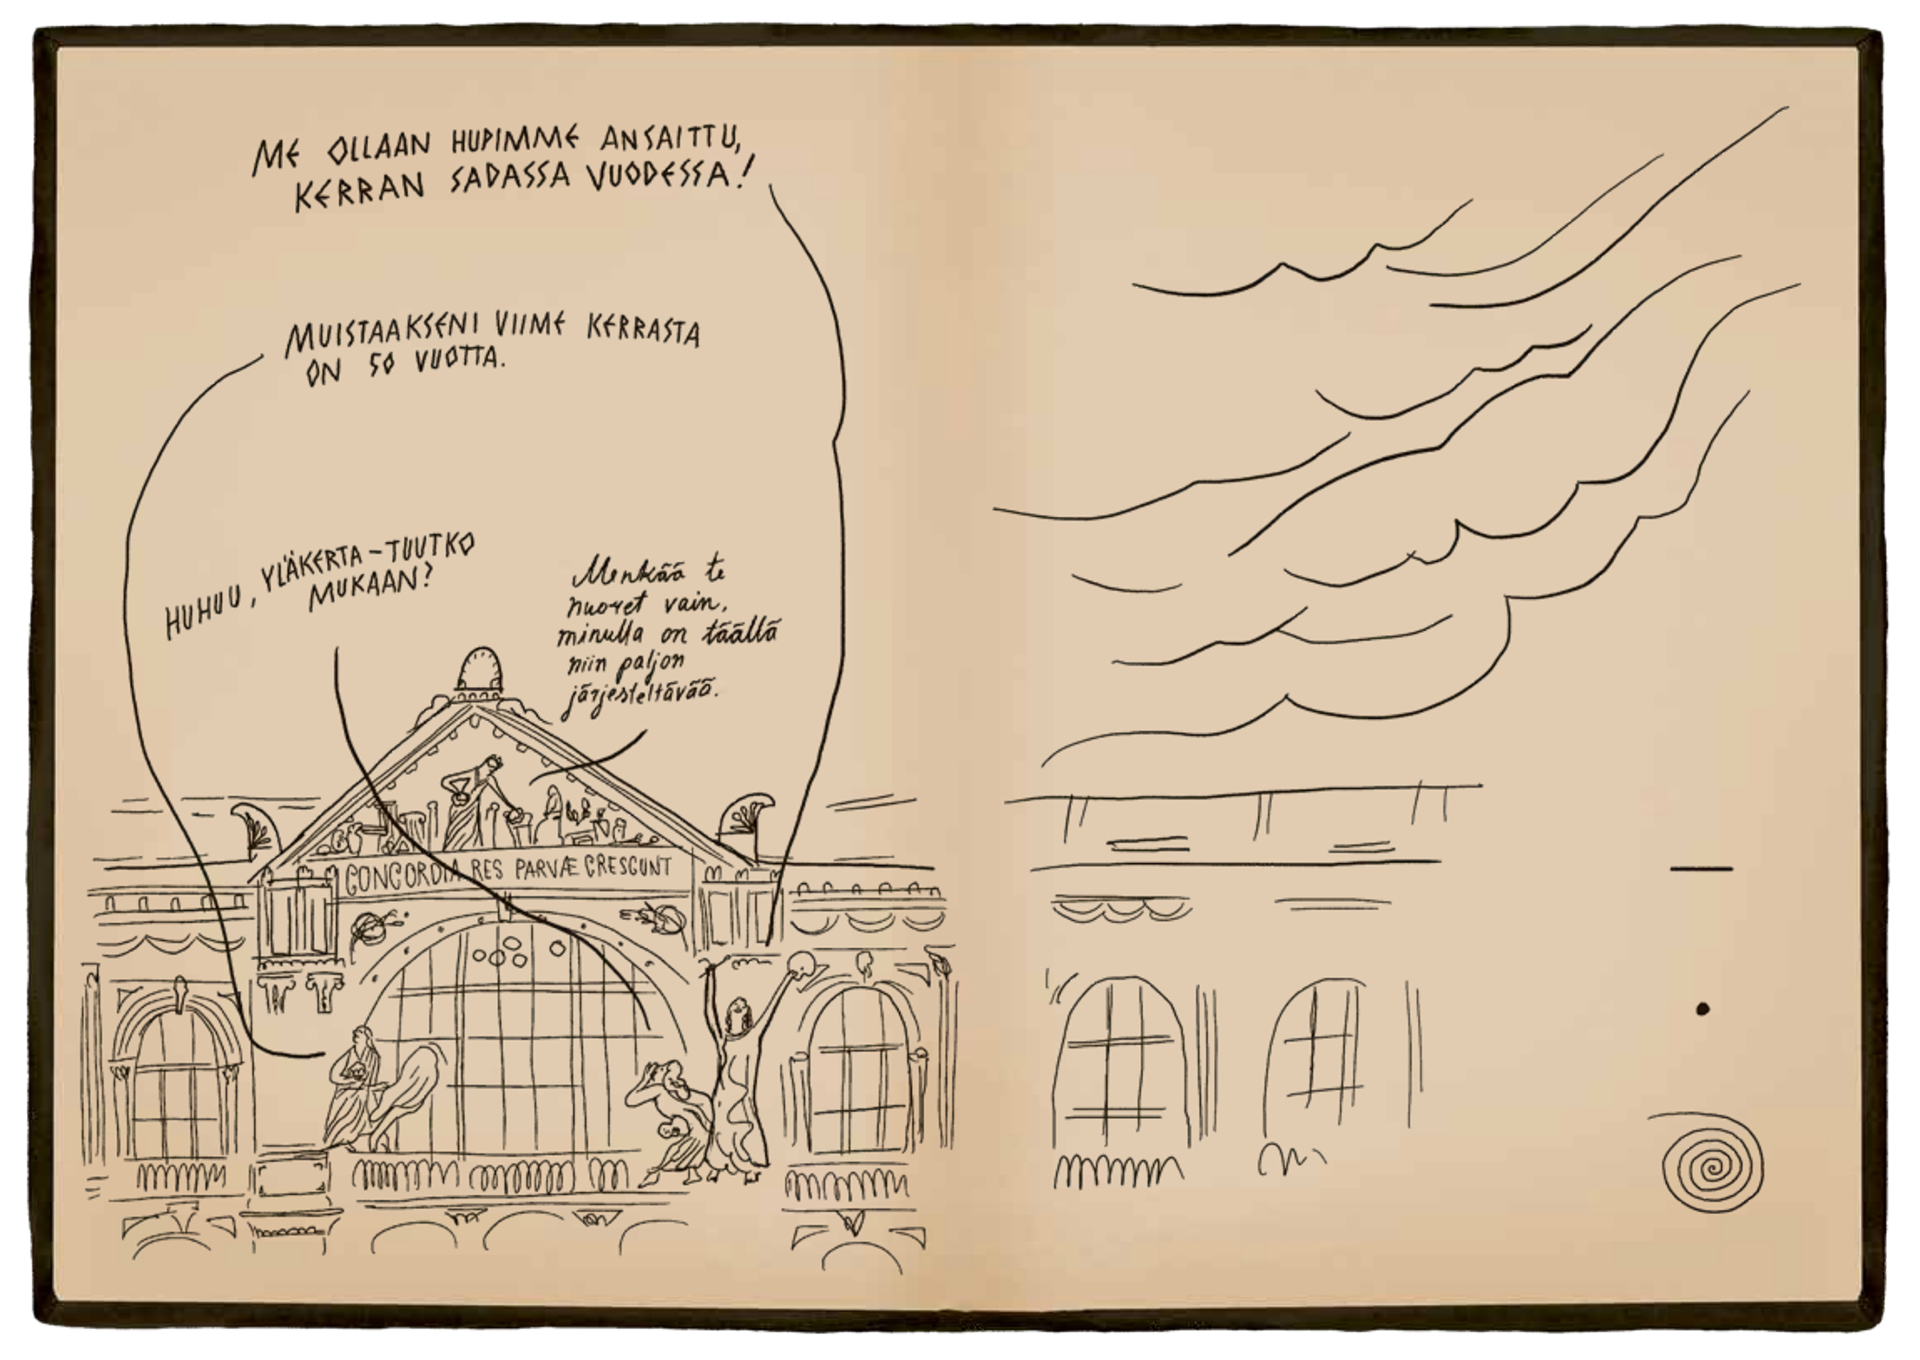 ME OLLAAN HUPIMME ANSAITTU,
KERRAN SADASSA VUODESSA!
MUISTAAKSENI VIIME KERRASTA
ON 50 VUOTTA.
HUHUU, YLÄKERTA - TUUTKO
MUKAAN?
Menkää te
nuoret vain,
minulla on täällä
niin paljon
järjesteltävää.
CONCORDIA RES PARVÆ CRESCUNT